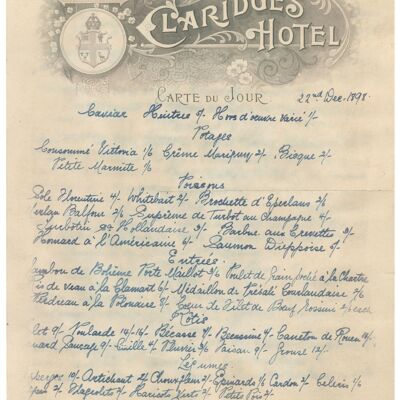 CLARIDGES
HOTEL
CARTE DU JOUR
22nd Dec. 1898.
Caviar Huitres 5/- Hors d'oeuvre varié 1/-
Potages
Consommé Victoria 1/6 Crême Marigny 2/- Bisque 2/-
Petite Marmite 1/6
Poissons
Sole Florentine 4/- Whitebait 2/- Brochette d'Eperlans 2/6
Merlan Balfour 2/- Suprème de Turbot au Champagne 4/-
Turbotin Hollandaise Barbue aux Crevettes
Homard à l'Américaine 4/- Saumon Dieppoise
Entrée
Jambon de Bohême Porte Maillot 3/6 Poulet de Grain à la Chartre
Ris de veau à la Clamart 6/- Médaillon de Courlandaise
Perdreau à la Polonaise Coeur de Filet de Boeuf Rossini
Rôtis
Poularde Bécasse 7/- Bécassine 4/- Caneton de Rouen
Caille 4/- Pluvier Faisan Grouse 12/-
Légumes
Asperges 10/- Artichaut 2/- Epinards 1/6 Cardon 2/- Céleris 1/6
Flageolets 2/- Haricots Verts 2/- Petits Pois 2/-